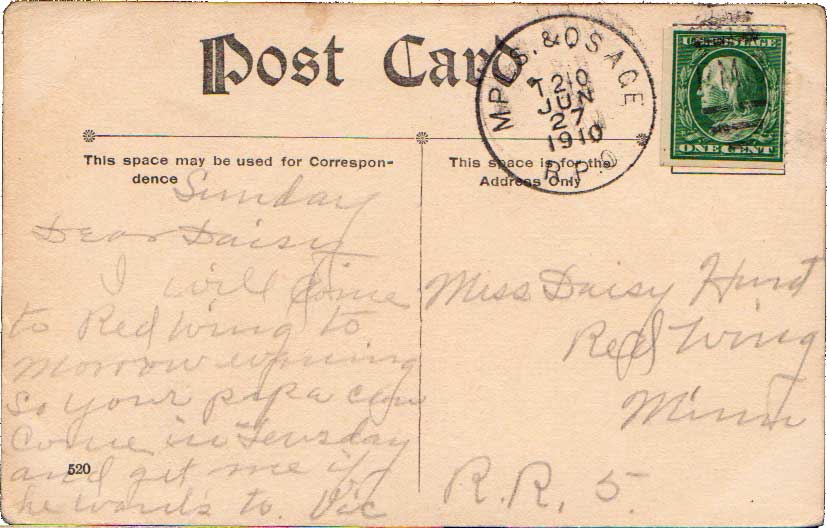 Post Card.
MPLS. & OSAGE
T210
JUN
27
1910
R.P.O
M
U.S. POSTAGE
ONE CENT
This space may be used for Correspon-
dence
This space is for the
Address Only
Sunday
Dear Daisy
I will come
to Red Wing to
morrow evening
so your papa can
come in Teusday
and get me if
he wants to. Vic
520
Miss Daisy Hunt
Red Wing
Minn
R.R. 5.